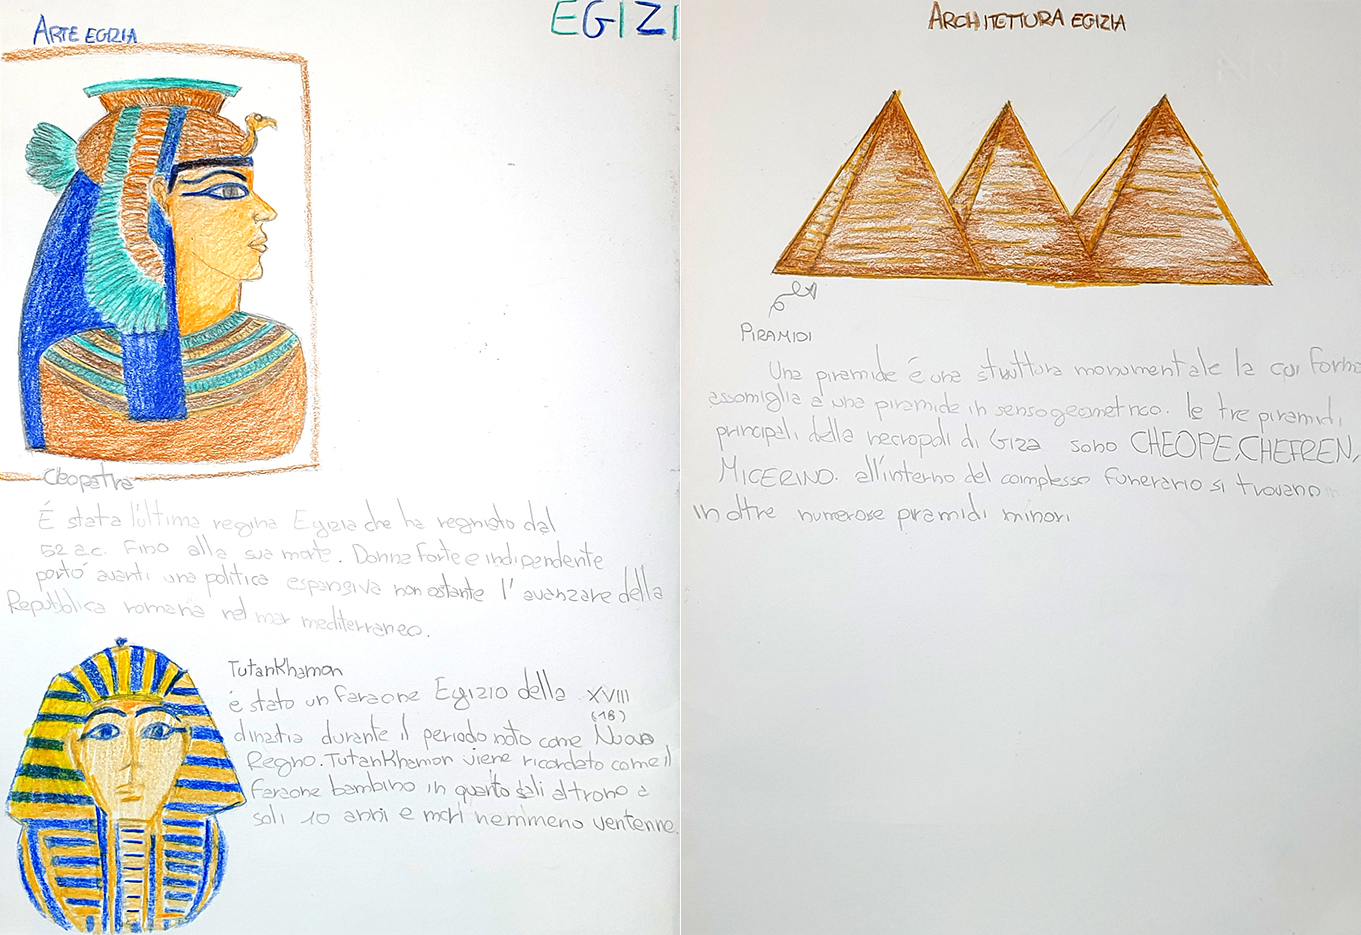 ARTE EGIZIA
EGIZI
Cleopatra
É stata l'ultima regina Egizia che ha regnato dal
52 a.c. Fino alla sua morte. Donna forte e indipendente
portó avanti una politica espansiva nonostante l'avanzare della
Repubblica romana nel mar mediterraneo.
TutanKhamon
é stato un faraone Egizio della XVIII
(18)
dinastia durante il periodo noto come Nuovo
Regno. TutanKhamon viene ricordato come il
faraone bambino in quanto salì al trono a
soli 10 anni e morì nemmeno ventenne.
ARCHITETTURA EGIZIA
PIRAMIDI
Una piramide é una struttura monumentale la cui forma
assomiglia a una piramide in senso geometrico. le tre piramidi
principali della necropoli di Giza sono CHEOPE, CHEFREN,
MICERINO. all'interno del complesso funerario si trovano
in oltre numerose piramidi minori